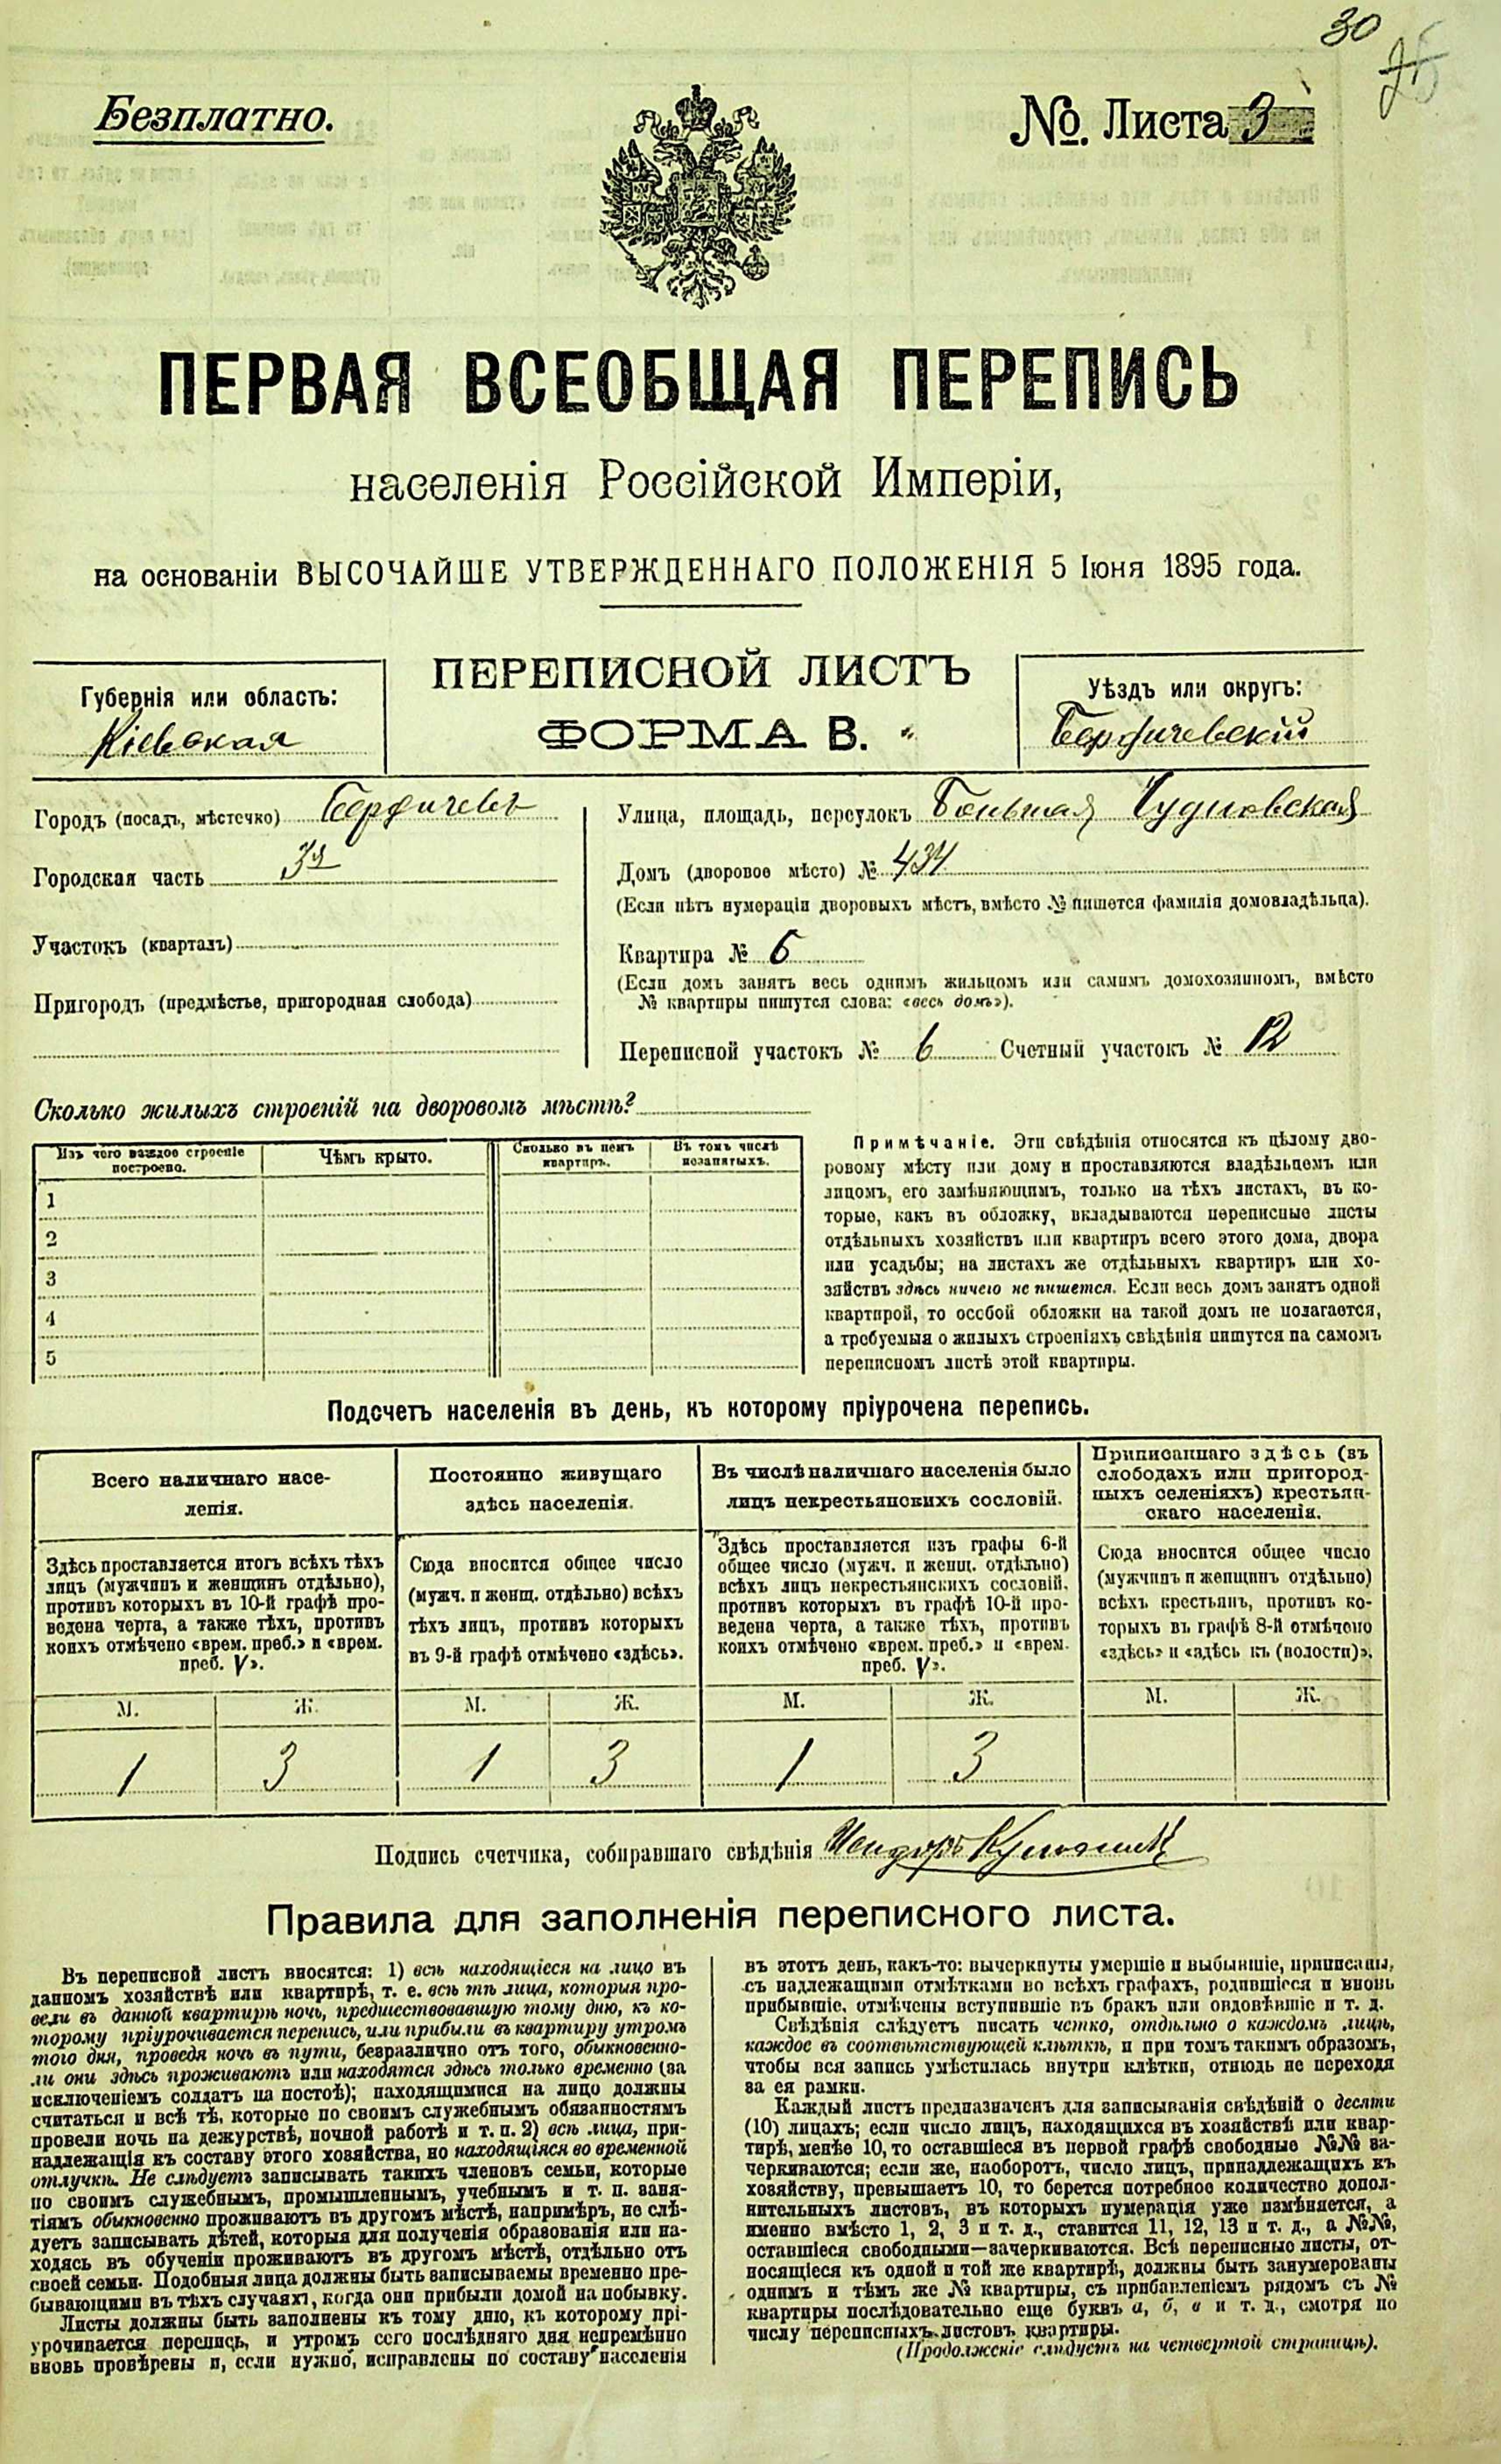 30
Безплатно.
№. Листа 3
ПЕРВАЯ ВСЕОБЩАЯ ПЕРЕПИСЬ
населенія Россійской Имперіи,
на основаніи ВЫСОЧАЙШЕ УТВЕРЖДЕННАГО ПОЛОЖЕНІЯ 5 Іюня 1895 года.
Губернія или область:
Кіевская
ПЕРЕПИСНОЙ ЛИСТЪ
ФОРМА В.
Уѣздъ или округъ:
Бердичевскій
Городъ (посадъ, мѣстечко) Бердичевъ
Городская часть 3я
Участокъ (кварталъ)
Пригородъ (предмѣстье, пригородная слобода)
Улица, площадь, переулокъ Большая Чудновская
Домъ (дворовое мѣсто) № 434
(Если нѣтъ нумераціи дворовыхъ мѣстъ, вмѣсто № пишется фамилія домовладѣльца).
Квартира № 6
(Если домъ занятъ весь однимъ жильцомъ или самимъ домохозяиномъ, вмѣсто
№ квартиры пишутся слова: «весь домъ»).
Переписной участокъ № 6 Счетный участокъ № 12
Сколько жилыхъ строеній на дворовомъ мѣстѣ?
Изъ чего каждое строеніе
построено.
Чѣмъ крыто.
Сколько въ немъ
квартиръ.
Въ томъ числѣ
незанятыхъ.
1
2
3
4
5
Примѣчаніе. Эти свѣдѣнія относятся къ цѣлому дво-
ровому мѣсту или дому и проставляются владѣльцемъ или
лицомъ, его замѣняющимъ, только на тѣхъ листахъ, въ ко-
торые, какъ въ обложку, вкладываются переписные листы
отдѣльныхъ хозяйствъ или квартиръ всего этого дома, двора
или усадьбы; на листахъ же отдѣльныхъ квартиръ или хо-
зяйствъ здѣсь ничего не пишется. Если весь домъ занятъ одной
квартирой, то особой обложки на такой домъ не полагается,
а требуемыя о жилыхъ строеніяхъ свѣдѣнія пишутся на самомъ
переписномъ листѣ этой квартиры.
Подсчетъ населенія въ день, къ которому пріурочена перепись.
Всего наличнаго насе-
ленія.
Здѣсь проставляется итогъ всѣхъ тѣхъ
лицъ (мужчинъ и женщинъ отдѣльно),
противъ которыхъ въ 10-й графѣ про-
ведена черта, а также тѣхъ, противъ
коихъ отмѣчено «врем. преб.» и «врем.
преб. V».
М. Ж.
1 3
Постоянно живущаго
здѣсь населенія.
Сюда вносится общее число
(мужч. и женщ. отдѣльно) всѣхъ
тѣхъ лицъ, противъ которыхъ
въ 9-й графѣ отмѣчено «здѣсь».
М. Ж.
1 3
Въ числѣ наличнаго населенія было
лицъ некрестьянскихъ сословій.
Здѣсь проставляется изъ графы 6-й
общее число (мужч. и женщ. отдѣльно)
всѣхъ лицъ некрестьянскихъ сословій,
противъ которыхъ въ графѣ 10-й про-
ведена черта, а также тѣхъ, противъ
коихъ отмѣчено «врем. преб.» и «врем.
преб. V».
М. Ж.
1 3
Приписаннаго здѣсь (въ
слободахъ или пригород-
ныхъ селеніяхъ) крестьян-
скаго населенія.
Сюда вносится общее число
(мужчинъ и женщинъ отдѣльно)
всѣхъ крестьянъ, противъ ко-
торыхъ въ графѣ 8-й отмѣчено
«здѣсь» и «здѣсь къ (волости)».
М. Ж.
Подпись счетчика, собиравшаго свѣдѣнія
Правила для заполненія переписного листа.
Въ переписной листъ вносятся: 1) всѣ находящіеся на лицо въ
данномъ хозяйствѣ или квартирѣ, т. е. всѣ тѣ лица, которыя про-
вели въ данной квартирѣ ночь, предшествовавшую тому дню, къ ко-
торому пріурочивается перепись, или прибыли въ квартиру утромъ
того дня, проведя ночь въ пути, безразлично отъ того, обыкновенно-
ли они здѣсь проживаютъ или находятся здѣсь только временно (за
исключеніемъ солдатъ на постоѣ); находящимися на лицо должны
считаться и всѣ тѣ, которые по своимъ служебнымъ обязанностямъ
провели ночь на дежурствѣ, ночной работѣ и т. п. 2) всѣ лица, при-
надлежащія къ составу этого хозяйства, но находящіяся во временной
отлучкѣ. Не слѣдуетъ записывать такихъ членовъ семьи, которые
по своимъ служебнымъ, промышленнымъ, учебнымъ и т. п. заня-
тіямъ обыкновенно проживаютъ въ другомъ мѣстѣ, напримѣръ, не слѣ-
дуетъ записывать дѣтей, которыя для полученія образованія или на-
ходясь въ обученіи проживаютъ въ другомъ мѣстѣ, отдѣльно отъ
своей семьи. Подобныя лица должны быть записываемы временно пре-
бывающими въ тѣхъ случаяхъ, когда они прибыли домой на побывку.
Листы должны быть заполнены къ тому дню, къ которому прі-
урочивается перепись, и утромъ сего послѣдняго дня непремѣнно
вновь провѣрены и, если нужно, исправлены по составу населенія
въ этотъ день, какъ-то: вычеркнуты умершіе и выбывшіе, приписаны,
съ надлежащими отмѣтками во всѣхъ графахъ, родившіеся и вновь
прибывшіе, отмѣчены вступившіе въ бракъ или овдовѣвшіе и т. д.
Свѣдѣнія слѣдуетъ писать четко, отдѣльно о каждомъ лицѣ,
каждое въ соотвѣтствующей клѣткѣ, и при томъ такимъ образомъ,
чтобы вся запись умѣстилась внутри клѣтки, отнюдь не переходя
за ея рамки.
Каждый листъ предназначенъ для записыванія свѣдѣній о десяти
(10) лицахъ; если число лицъ, находящихся въ хозяйствѣ или квар-
тирѣ, менѣе 10, то оставшіеся въ первой графѣ свободные №№ за-
черкиваются; если же, наоборотъ, число лицъ, принадлежащихъ къ
хозяйству, превышаетъ 10, то берется потребное количество допол-
нительныхъ листовъ, въ которыхъ нумерація уже измѣняется, а
именно вмѣсто 1, 2, 3 и т. д., ставится 11, 12, 13 и т. д., а №№,
оставшіеся свободными—зачеркиваются. Всѣ переписные листы, от-
носящіеся къ одной и той же квартирѣ, должны быть занумерованы
однимъ и тѣмъ же № квартиры, съ прибавленіемъ рядомъ съ №
квартиры послѣдовательно еще буквъ а, б, в и т. д., смотря по
числу переписныхъ листовъ квартиры.
(Продолженіе слѣдуетъ на четвертой страницѣ).